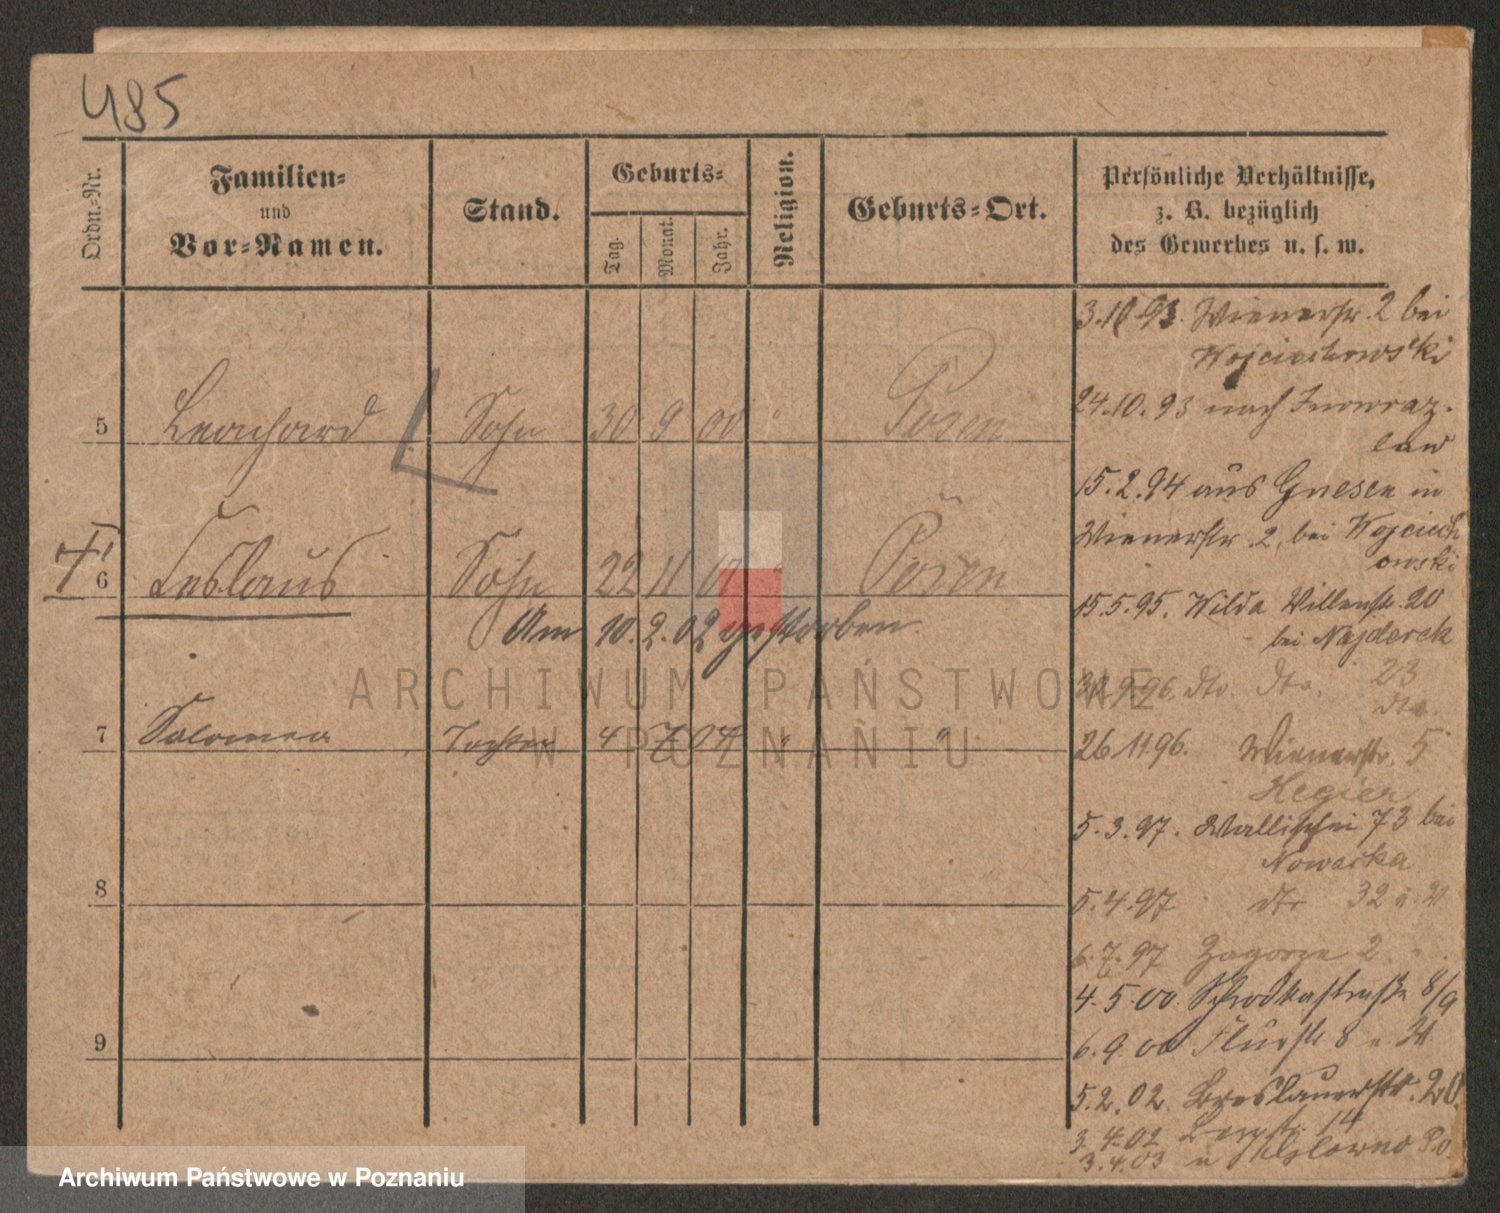 485
Ordn.-Nr.
Familien-
und
Vor-Namen.
Stand.
Geburts-
Tag.
Monat.
Jahr.
Religion.
Geburts-Ort.
Persönliche Verhältnisse,
z. B. bezüglich
des Gewerbes u. s. w.
5 Leonhard Sohn 30 9 00 " Posen
6 Ceslaus Sohn 22 11 01 " Posen
Am 10.2.02 gestorben
7 Salomea Tochter 4 7 04 " "
8
9
3.10.93. Wienerstr. 2 bei
Wojciechowski
24.10.93 nach Inowraz-
law
15.2.94 aus Gnesen in
Wienerstr. 2, bei Wojciech
owski
15.5.95. Wilda Villenstr. 20
bei Najderek
9.96. dto. dto. 23
dto.
26.11.96. Wienerstr. 5
Hegier
5.3.97. Wallischei 73 bei
Nowacka
5.4.97 dto 32
6.7.97 Zagorze 2
4.5.00. Schrodkastraße 8/9
6.9.00 Flurstr 8
5.2.02. Breslauerstr. 20.
3.4.02 Bergstr. 14
3.4.03 n
ARCHIWUM PAŃSTWOWE
W POZNANIU
Archiwum Państwowe w Poznaniu